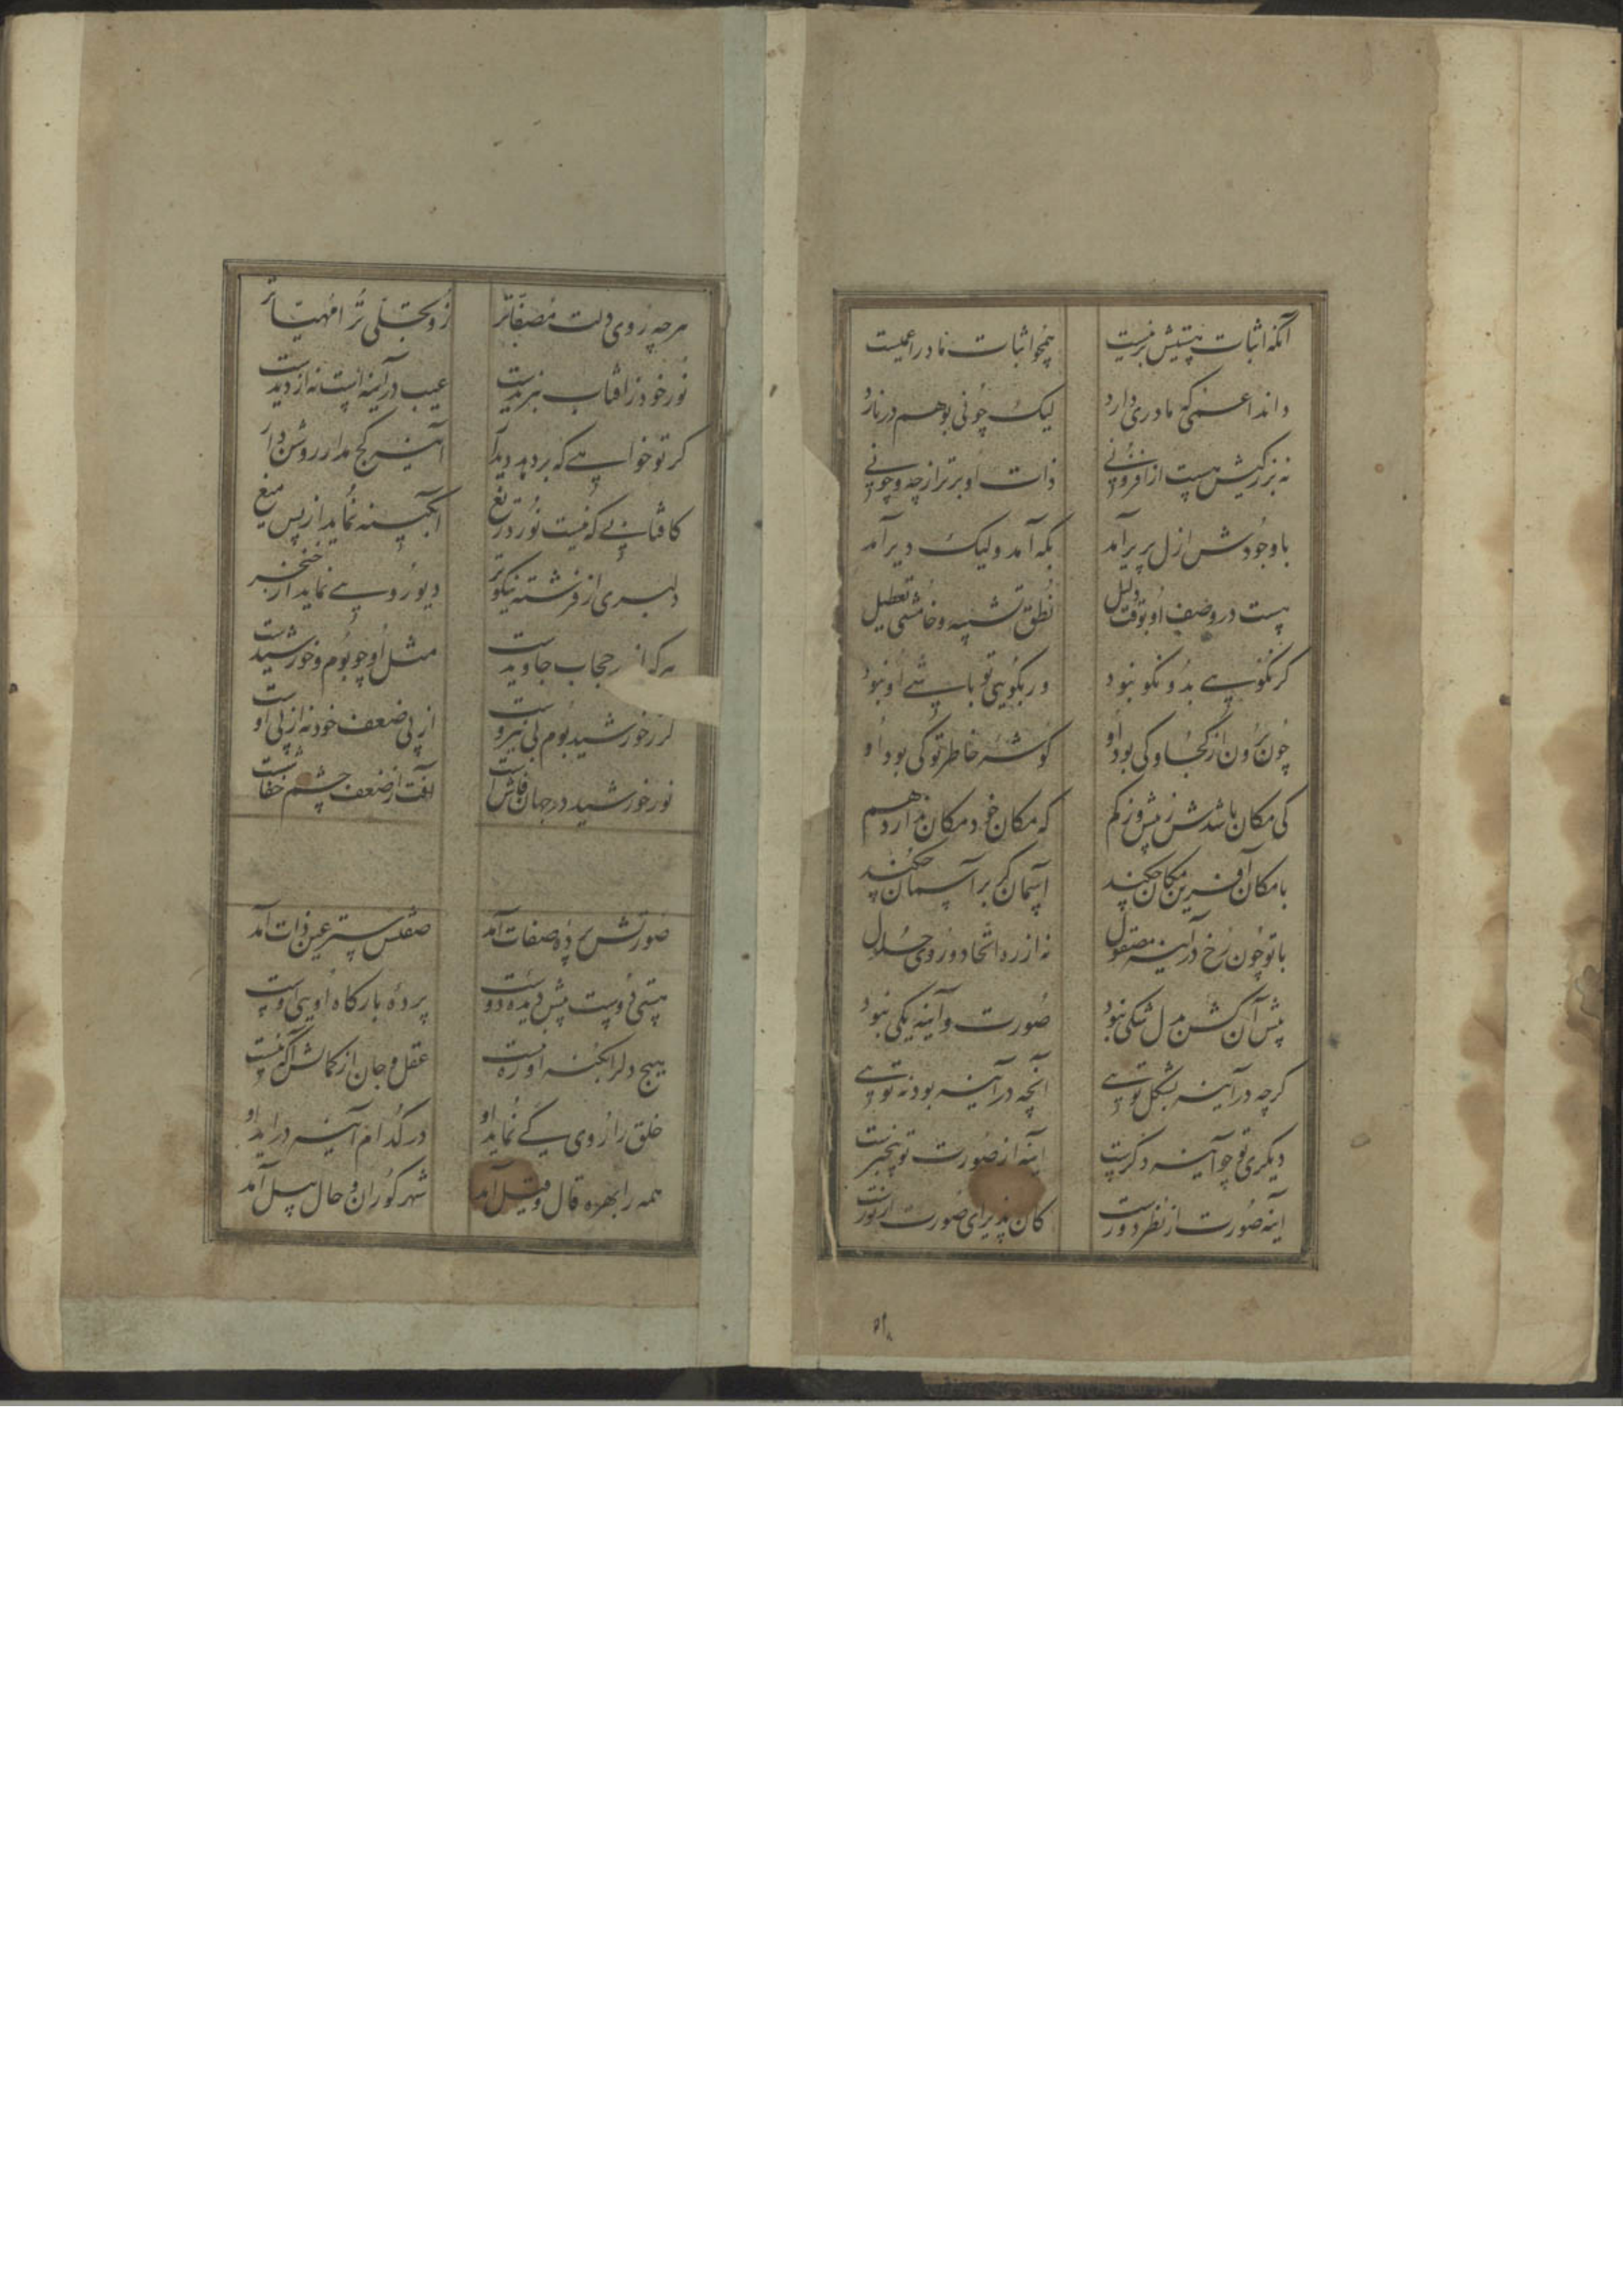 آنکه اثبات هستیش بر نیست همچو اثبات مادر اعمیست
داند اعمی که مادری دارد لیک چونی بوهم درنارد
نه بزرکیش هست از افزونی ذات او برتر از چه و چونی
با وجودش ازل پریر آمد بکه آمد ولیک دیر آمد
هست در وصف او بوقت دلیل نطق تشبیه و خامشی تعطیل
کر نکویی بدو نکو نبود ور بکویی تو باشی او نبود
چون برون از کجا و کی بود او کوشه خاطر تو کی بود او
کی مکان باشدش ز بیش و ز کم که مکان خود مکان ندارد هم
با مکان آفرین مکان چکند آسمان کر بر آسمان چکند
با تو چون رخ در آینه مصقول نه از ره اتحاد و روی حلول
پیش آن کش بدل شکی نبود صورت و آینه یکی نبود
کرچه در آینه بشکل تویی آنچه در آینه بود نه تویی
دیکری تو چو آینه دکرست آینه از صورت تو بیخبرست
آینه صورت از نظر دورست کان پذیرای صورت از نورست
هرچه روی دلت مصفاتر زو تجلی ترا مهیاتر
نور خود زافتاب نبریدست عیب در آینه است نه از دیدست
کر تو خواهی که بر دهد دیدار آینه کج مدار روشن دار
کافتابی که نیست نور دریغ آبکینه نماید از پس میغ
دلبری از فرشته نیکوتر دیو رویی نماید از خنجر
هر که اندر حجاب جاویدست مثل او چو بوم و خورشیدست
کر ز خورشید بوم بی نیروست از پی ضعف خود نه از پی اوست
نور خورشید در جهان فاش است آفت از ضعف چشم خفاش است
صورتش پرده صفات آمد صفتش ستر عین ذات آمد
هستی دوست پیش دیده دوست پرده بارکاه اویی اوست
هیچ دل را بکنه او ره نیست عقل و جان از کمالش آکه نیست
خلق را روی کی نماید او در کدام آینه درآید او
همه را بهره قال و قیل آمد شهر کوران و حال پیل آمد